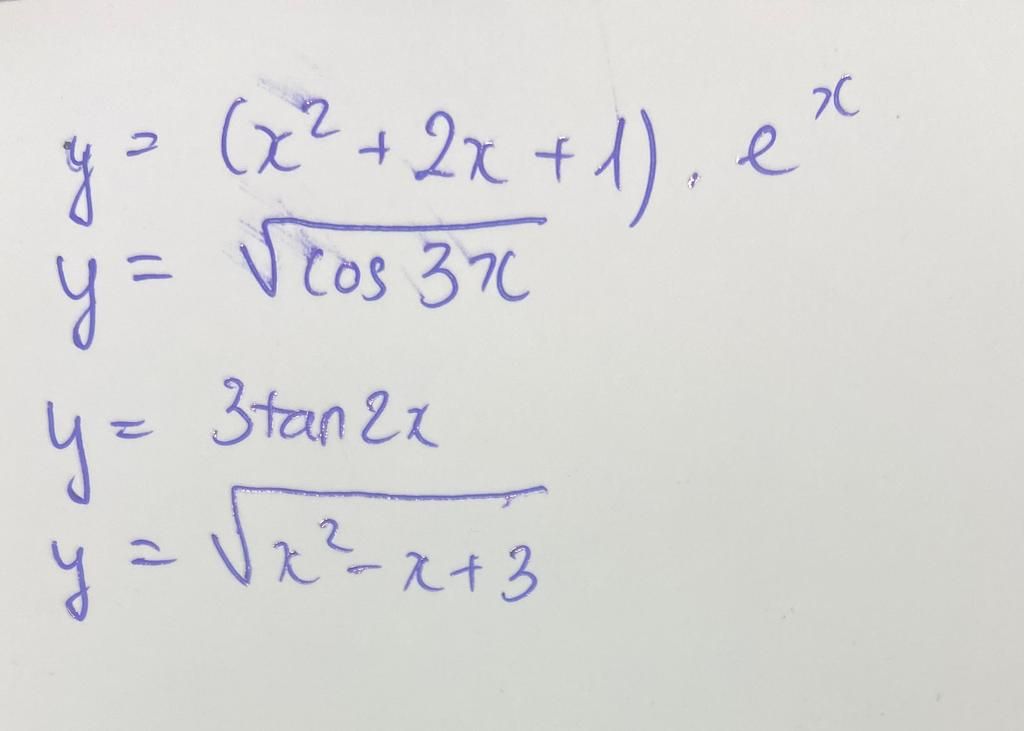 y = (x² + 2x + 1) . eˣ
y = √(cos 3x)
y = 3tan2x
y = √(x² - x + 3)